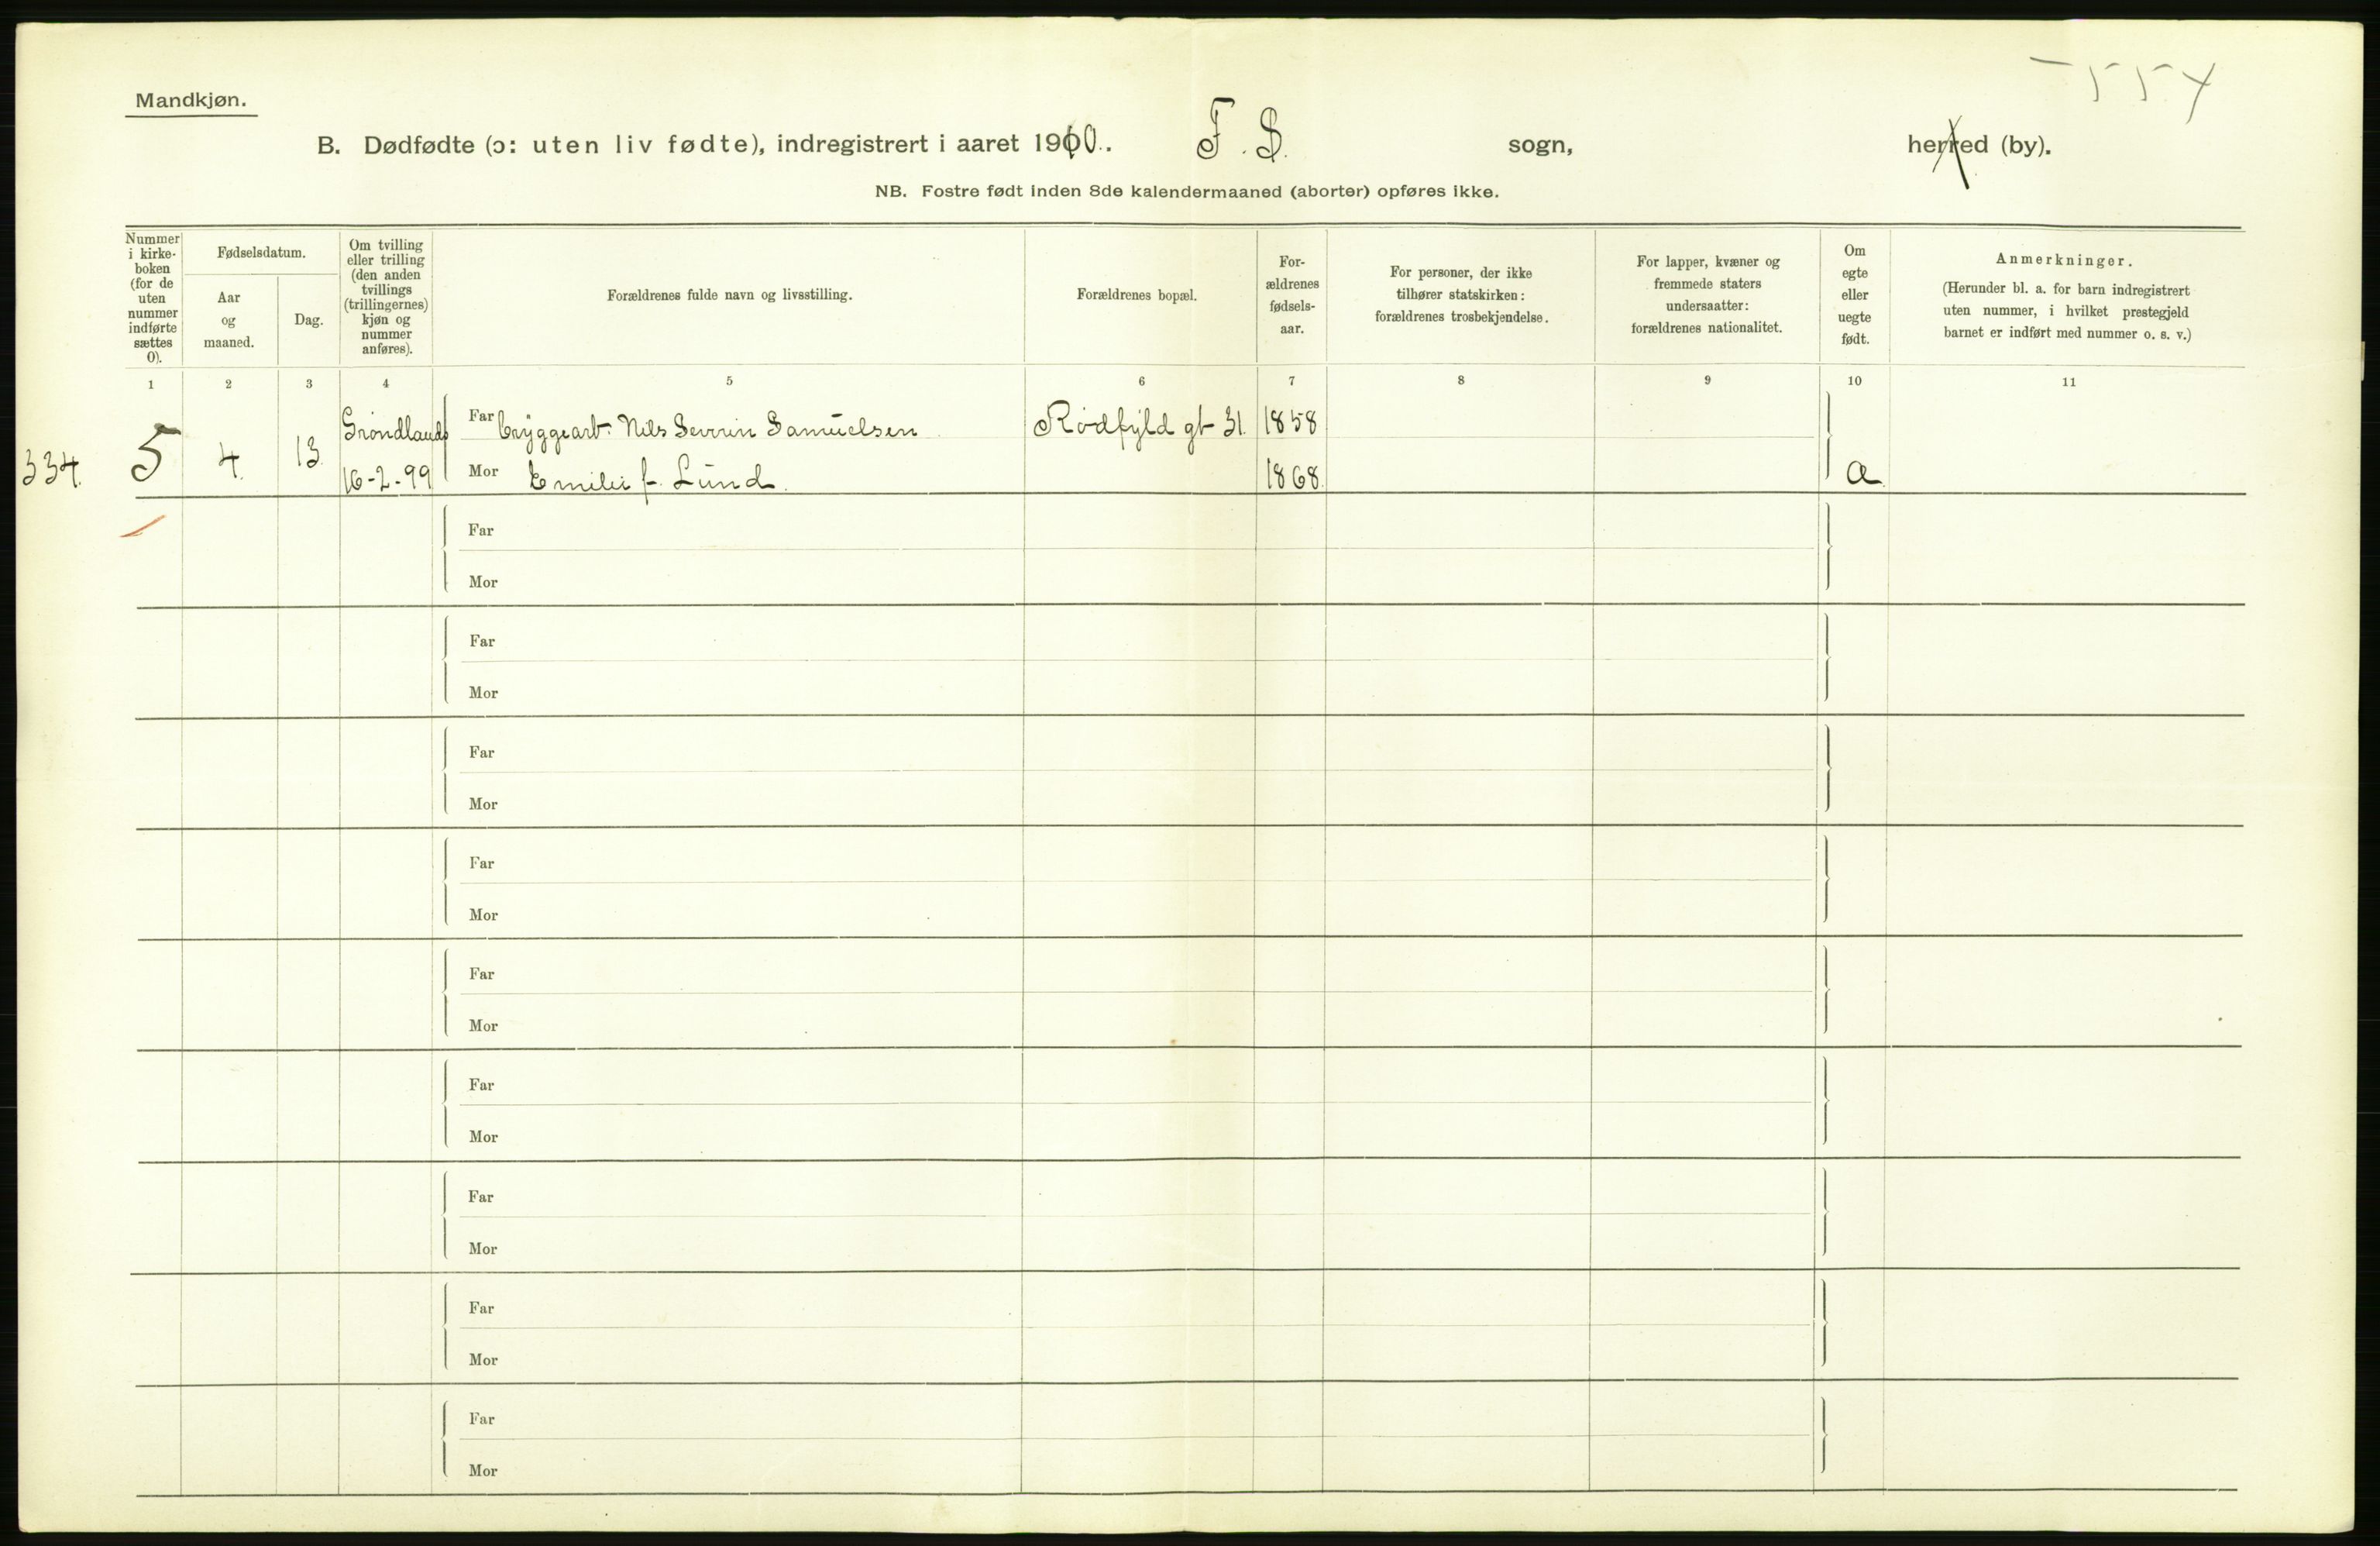 Mandkjøn.
B. Dødfødte (ɔ: uten liv fødte), indregistrert i aaret 1910. F. S. sogn, herred (by).
NB. Fostre født inden 8de kalendermaaned (aborter) opføres ikke.
Nummer i kirke-
boken
(for de
uten
nummer
indførte
sættes
0).
Fødselsdatum.
Aar
og
maaned.
Dag.
Om tvilling
eller trilling
(den anden
tvillings
(trillingernes)
kjøn og
nummer
anføres).
Forældrenes fulde navn og livsstilling.
Forældrenes bopæl.
For-
ældrenes
fødsels-
aar.
For personer, der ikke
tilhører statskirken:
forældrenes trosbekjendelse.
For lapper, kvæner og
fremmede staters
undersaatter:
forældrenes nationalitet.
Om
egte
eller
uegte
født.
Anmerkninger.
(Herunder bl. a. for barn indregistrert
uten nummer, i hvilket prestegjeld
barnet er indført med nummer o. s. v.)
1 2 3 4 5 6 7 8 9 10 11
334. 5 4. 13. Grøndlands Far Bryggearb. Nils Severin Samuelsen Rødfyld gt 31. 1858
16-2-99 Mor Emilie f. Lund. 1868. a
Far
Mor
Far
Mor
Far
Mor
Far
Mor
Far
Mor
Far
Mor
Far
Mor
Far
Mor
Far
Mor